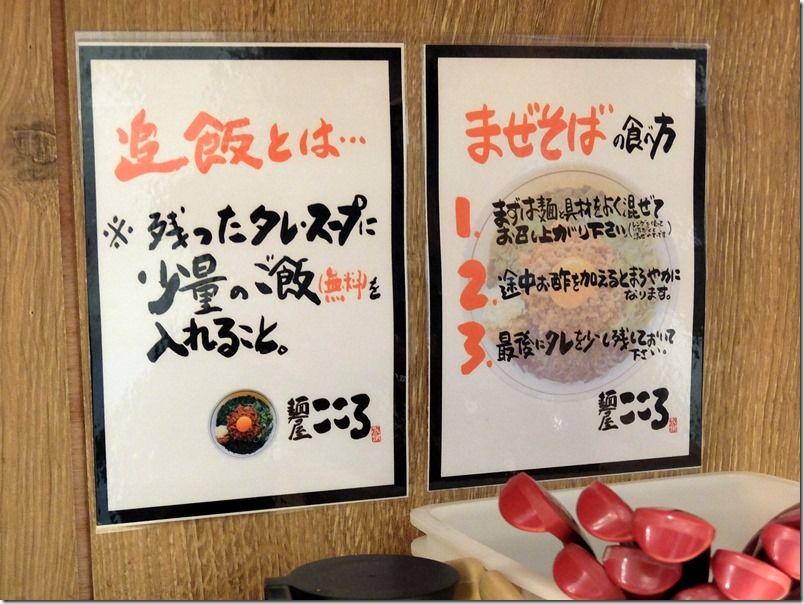 追飯とは…
※残ったタレ・スープに
少量のご飯(無料)を
入れること。
麺屋こころ
まぜそばの食べ方
1. まずは麺と具材をよく混ぜて
お召し上がり下さい
2. 途中お酢を加えるとまろやかに
なります。
3. 最後にタレを少し残しておいて
下さい。
麺屋こころ